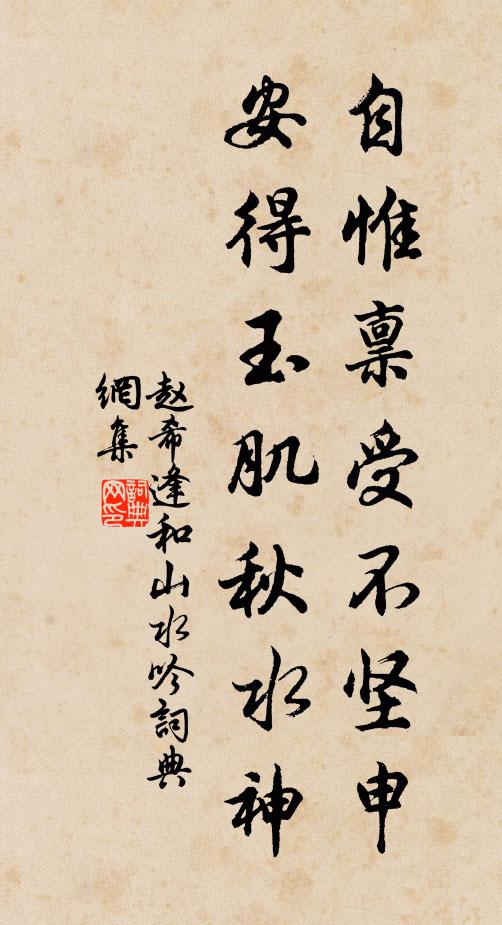 自惟禀受不坚申
安得玉肌秋水神
赵希逢和山水吟詞典
網集
詞典
网印